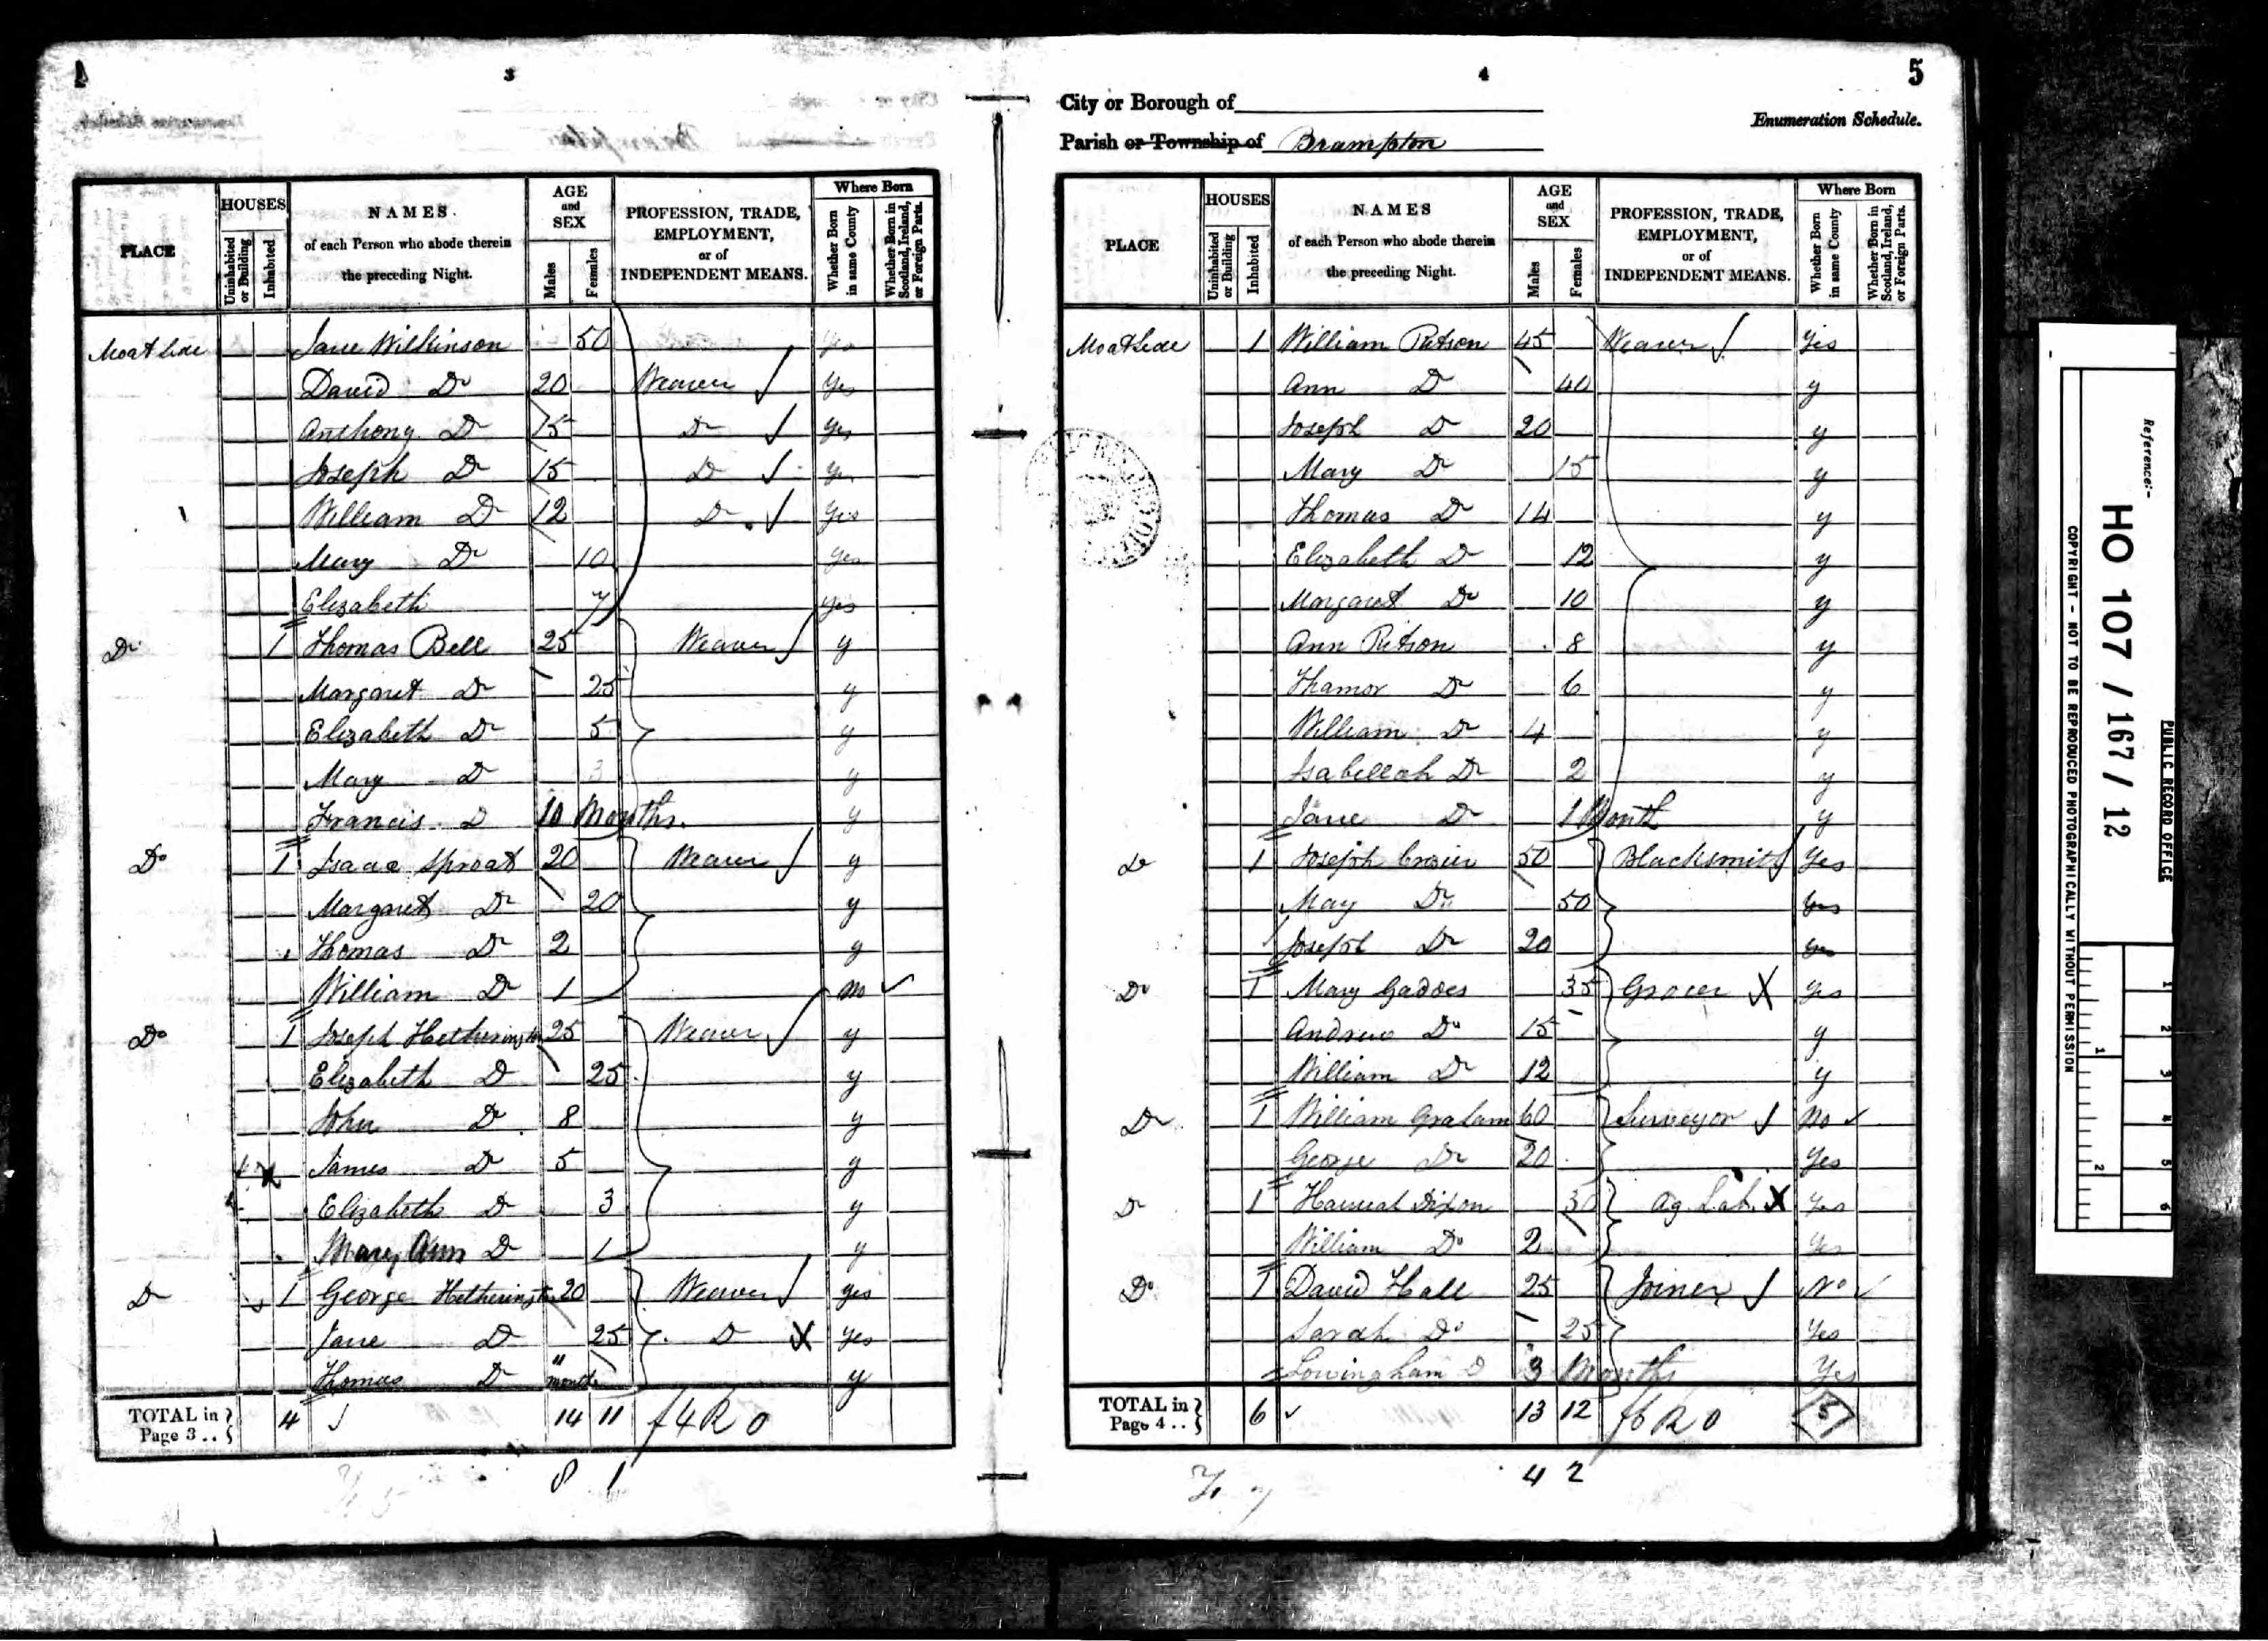 3
PLACE
HOUSES
Uninhabited or Building
Inhabited
NAMES
of each Person who abode therein
the preceding Night.
AGE
and
SEX
Males
Females
PROFESSION, TRADE,
EMPLOYMENT,
or of
INDEPENDENT MEANS.
Where Born
Whether Born in same County
Whether Born in Scotland, Ireland, or Foreign Parts.
Moat Side Jane Wilkinson 50 Yes
David Do 20 Weaver Yes
Anthony Do 15 Do Yes
Joseph Do 15 Do Yes
William Do 12 Do Yes
Mary Do 10 Yes
Elizabeth 7 Yes
Do 1 Thomas Bell 25 Weaver y
Margaret Do 25 y
Elizabeth Do 5 y
Mary Do 3 y
Francis Do 10 Months. y
Do 1 Isaac Sproat 20 Weaver y
Margaret Do 20 y
Thomas Do 2 y
William Do 1 No ✓
Do 1 Joseph Hetherington 25 Weaver y
Elizabeth Do 25 y
John Do 8 y
James Do 5 y
Elizabeth Do 3 y
Mary Ann Do 1 y
Do 1 George Hetherington 20 Weaver yes
Jane Do 25 Do X Yes
Thomas Do 11 months y
TOTAL in Page 3 .. 4 14 11
8 1
4
5
City or Borough of
Enumeration Schedule.
Parish or Township of Brampton
PLACE
HOUSES
Uninhabited or Building
Inhabited
NAMES
of each Person who abode therein
the preceding Night.
AGE
and
SEX
Males
Females
PROFESSION, TRADE,
EMPLOYMENT,
or of
INDEPENDENT MEANS.
Where Born
Whether Born in same County
Whether Born in Scotland, Ireland, or Foreign Parts.
Moat Side 1 William Ritson 45 Weaver Yes
Ann Do 40 y
Joseph Do 20 y
Mary Do 15 y
Thomas Do 14 y
Elizabeth Do 12 y
Margaret Do 10 y
Ann Ritson 8 y
Thamor Do 6 y
William Do 4 y
Isabellah Do 2 y
Jane Do 1 Month y
Do 1 Joseph Crozier 50 Blacksmith Yes
May Do 50 Yes
Joseph Do 20 Yes
Do 1 Mary Gaddes 35 Grocer X Yes
Andrew Do 15 y
William Do 12 y
Do 1 William Graham 60 Surveyor No ✓
George Do 20 Yes
Do 1 Hannah Dixon 30 Ag. Lab. X Yes
William Do 2 Yes
Do 1 David Hall 25 Joiner No ✓
Sarah Do 25 Yes
Lowingham Do 3 Months Yes
TOTAL in Page 4 .. 6 ✓ 13 12
4 2
Reference:-
HO 107 / 167 / 12
PUBLIC RECORD OFFICE
COPYRIGHT - NOT TO BE REPRODUCED PHOTOGRAPHICALLY WITHOUT PERMISSION
1 2 3 4 5 6
1 2